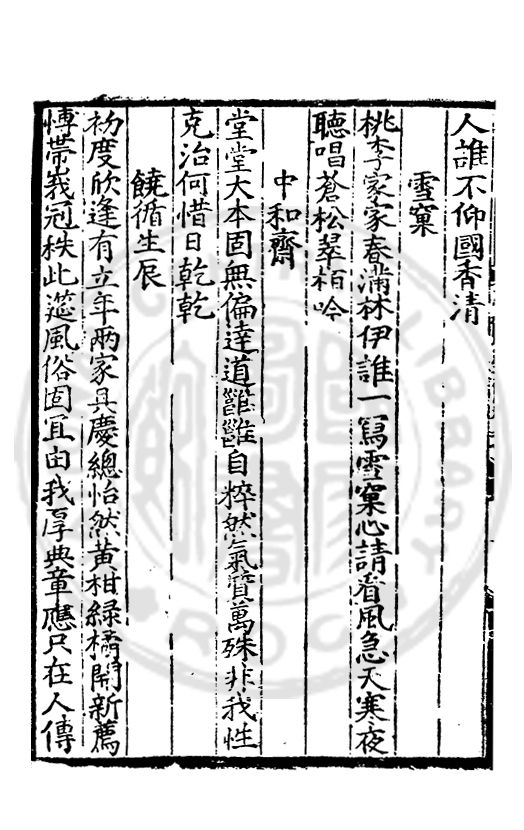 人誰不仰國香清
雪窠
桃李家家春滿林伊誰一寫雪窠心請看風急天寒夜
聽唱蒼松翠栢吟
中和齋
堂堂大本固無偏達道雝雝自粹然氣質萬殊非我性
克治何惜日乾乾
饒循生辰
初度欣逢有立年兩家具慶總怡然黃柑綠橘開新薦
博帶峩冠秩此筵風俗固宜由我厚典章應只在人傳